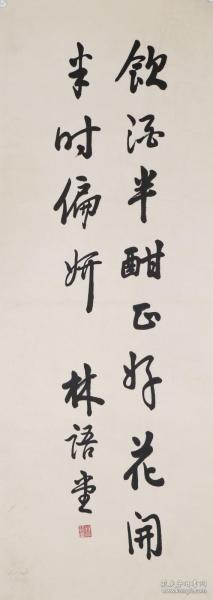 飲酒半酣正好花開
半时偏妍 林語堂